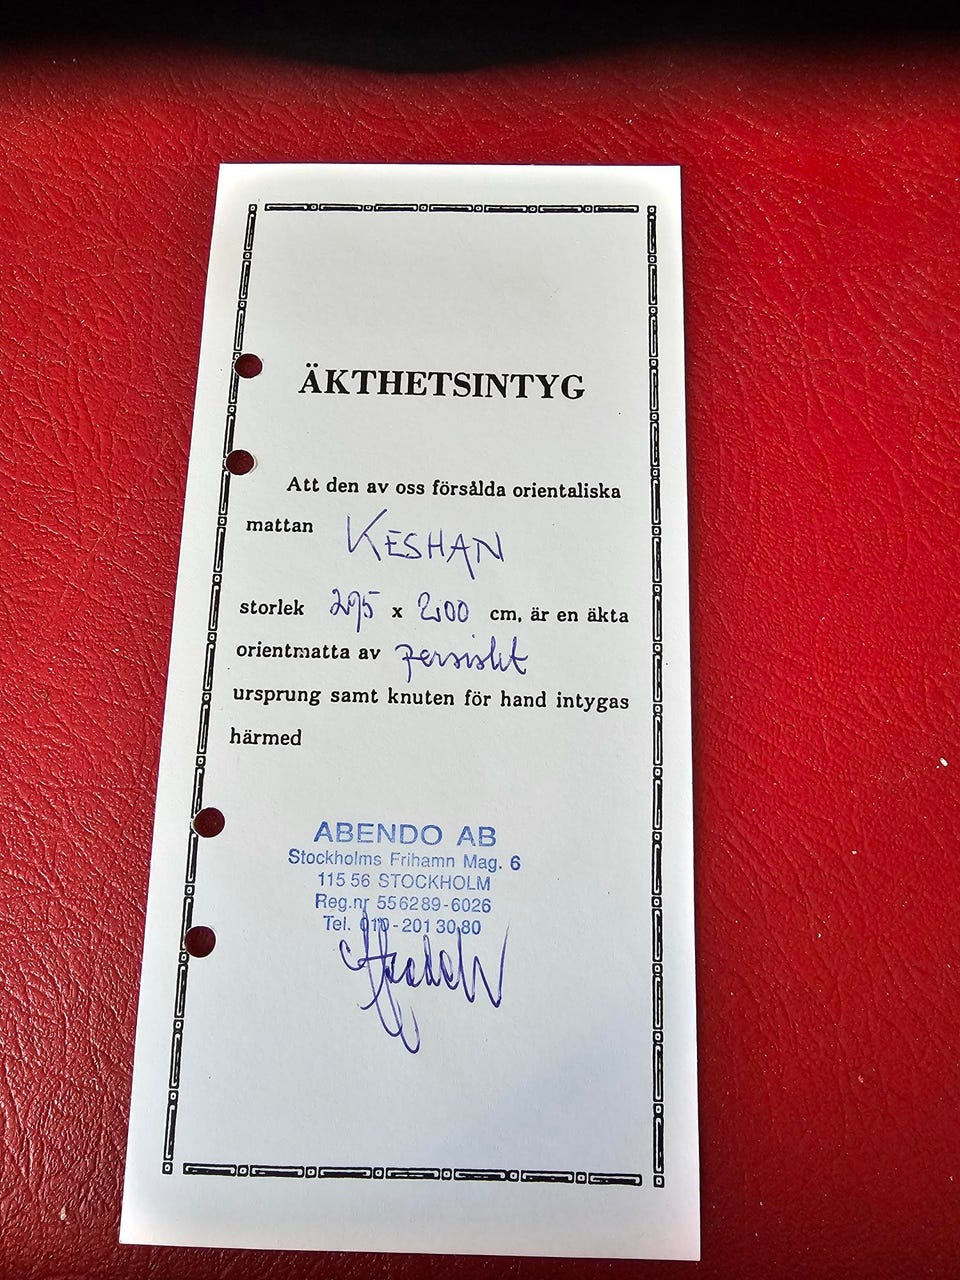 ÄKTHETSINTYG
Att den av oss försålda orientaliska
mattan KESHAN
storlek 295 x 200 cm, är en äkta
orientmatta av persiskt
ursprung samt knuten för hand intygas
härmed
ABENDO AB
Stockholms Frihamn Mag. 6
115 56 STOCKHOLM
Reg.nr 556289-6026
Tel. 010-201 30 80